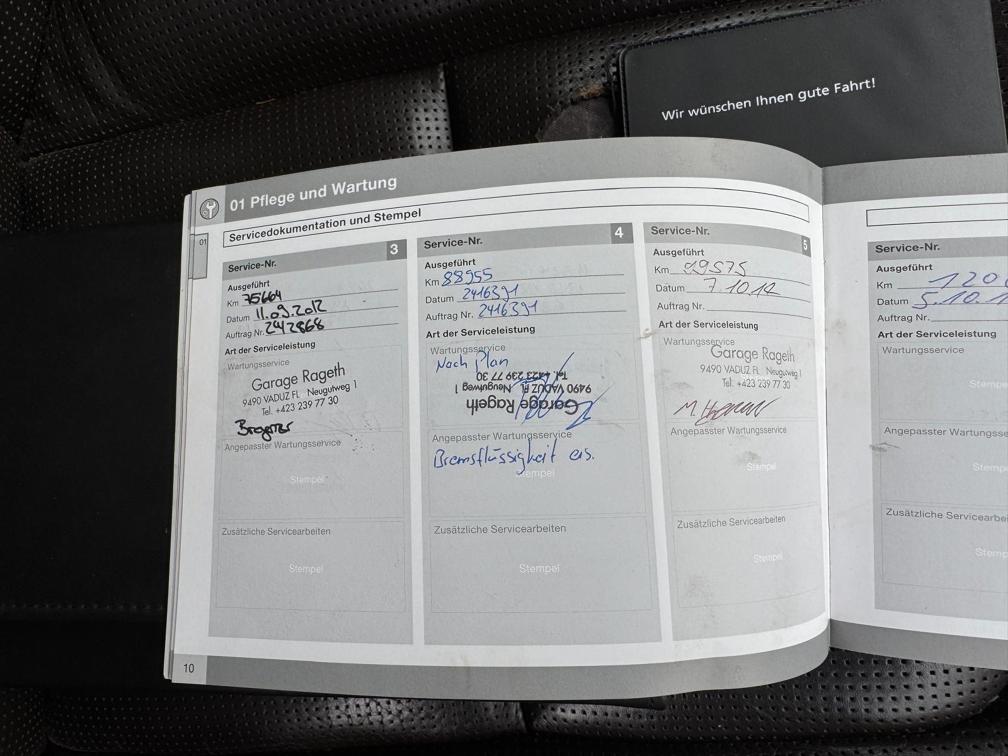 Wir wünschen Ihnen gute Fahrt!
01 Pflege und Wartung
01
Servicedokumentation und Stempel
Service-Nr. 3
Ausgeführt
Km 75664
Datum 11.09.2012
Auftrag Nr. 242868
Art der Serviceleistung
Wartungsservice
Garage Rageth
9490 VADUZ FL Neugutweg 1
Tel. +423 239 77 30
Angepasster Wartungsservice
Stempel
Zusätzliche Servicearbeiten
Stempel
Service-Nr. 4
Ausgeführt
Km 88955
Datum 2416391
Auftrag Nr. 2416391
Art der Serviceleistung
Wartungsservice
Nach Plan
Garage Rageth
9490 VADUZ FL Neugutweg 1
Tel. +423 239 77 30
Angepasster Wartungsservice
Bremsflüssigkeit ers.
Stempel
Zusätzliche Servicearbeiten
Stempel
Service-Nr. 5
Ausgeführt
Km 99575
Datum 7.10.14
Auftrag Nr.
Art der Serviceleistung
Wartungsservice
Garage Rageth
9490 VADUZ FL Neugutweg 1
Tel. +423 239 77 30
Angepasster Wartungsservice
Stempel
Zusätzliche Servicearbeiten
Stempel
Service-Nr.
Ausgeführt
Km 120
Datum 5.10.1
Auftrag Nr.
Art der Serviceleistung
Wartungsservice
Stemp
Angepasster Wartungsse
Stemp
Zusätzliche Servicearbe
Stemp
10